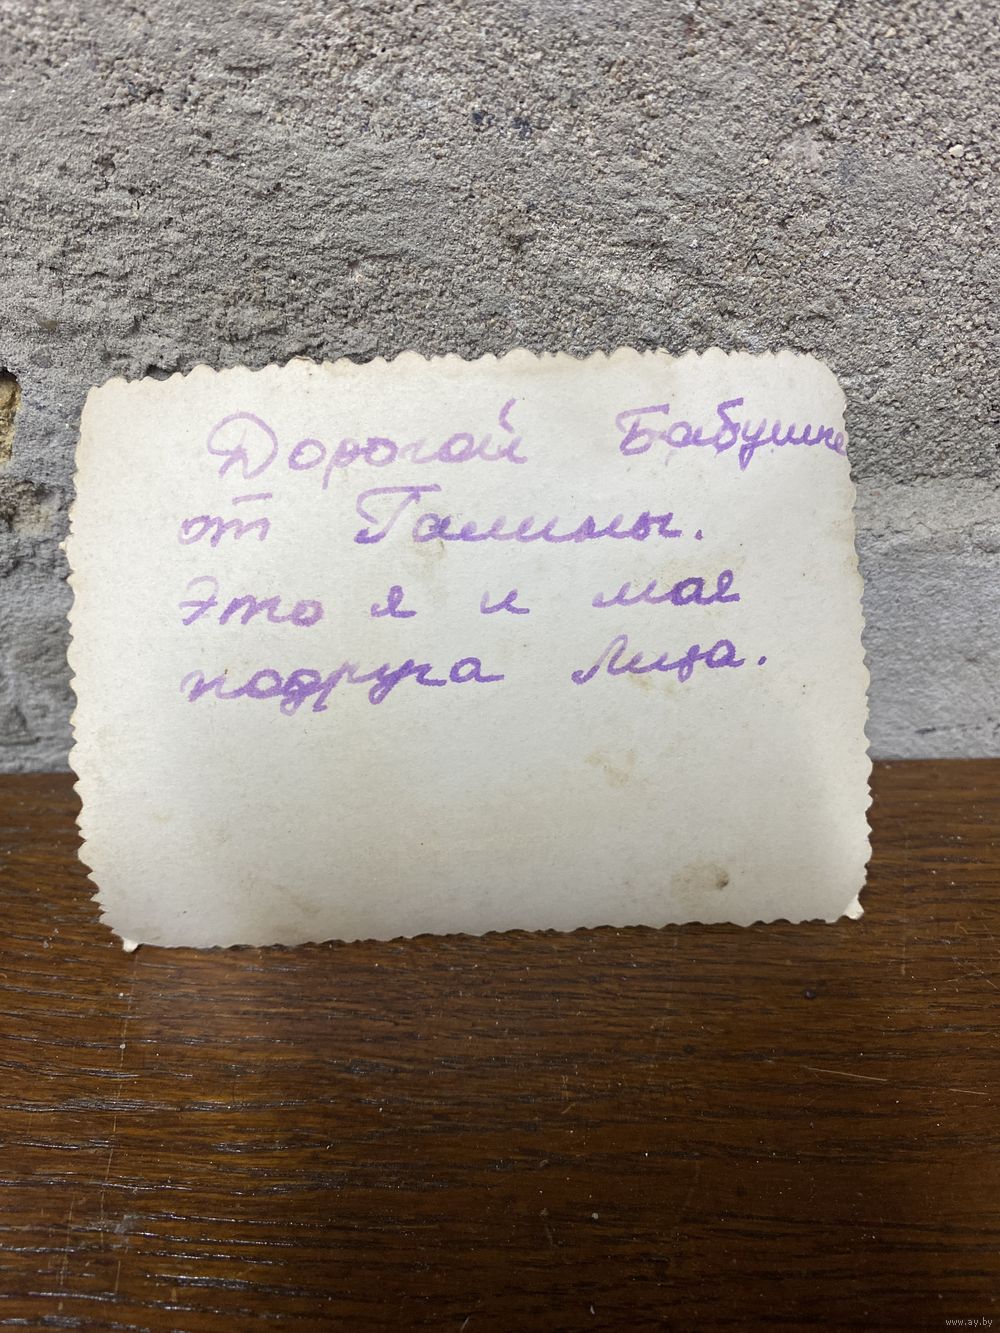 Дорогай Бабушке
от Галины.
Это я и моя
подруга Лиза.
www.ay.by